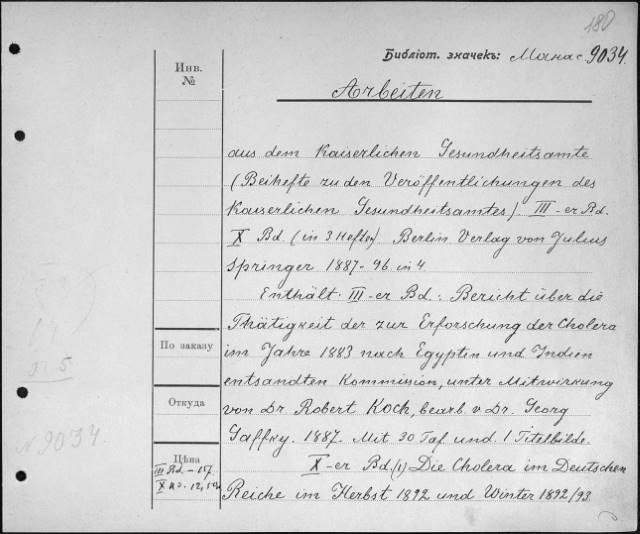 180
Библіот. значекъ: 9034.
Инв.
№
Arbeiten
aus dem Kaiserlichen Gesundheitsamte
(Beihefte zu den Veröffentlichungen des
Kaiserlichen Gesundheitsamtes). III-er Bd.
X Bd. (in 3 Hefte) Berlin Verlag von Julius
Springer 1887-96. in 4.
Enthält: III-er Bd.: Bericht über die
Thätigkeit der zur Erforschung der Cholera
По заказу
im Jahre 1883 nach Egypten und Indien
entsandten Kommission, unter Mitwirkung
Откуда
von Dr. Robert Koch, bearb. v. Dr. Georg
Gaffky. 1887. Mit 30 Taf. und. 1 Titelbilde.
N 9034.
Цѣна
III Bd. –
X
X-er Bd. (1) Die Cholera im Deutschen
Reiche im Herbst 1892 und Winter 1892/93.